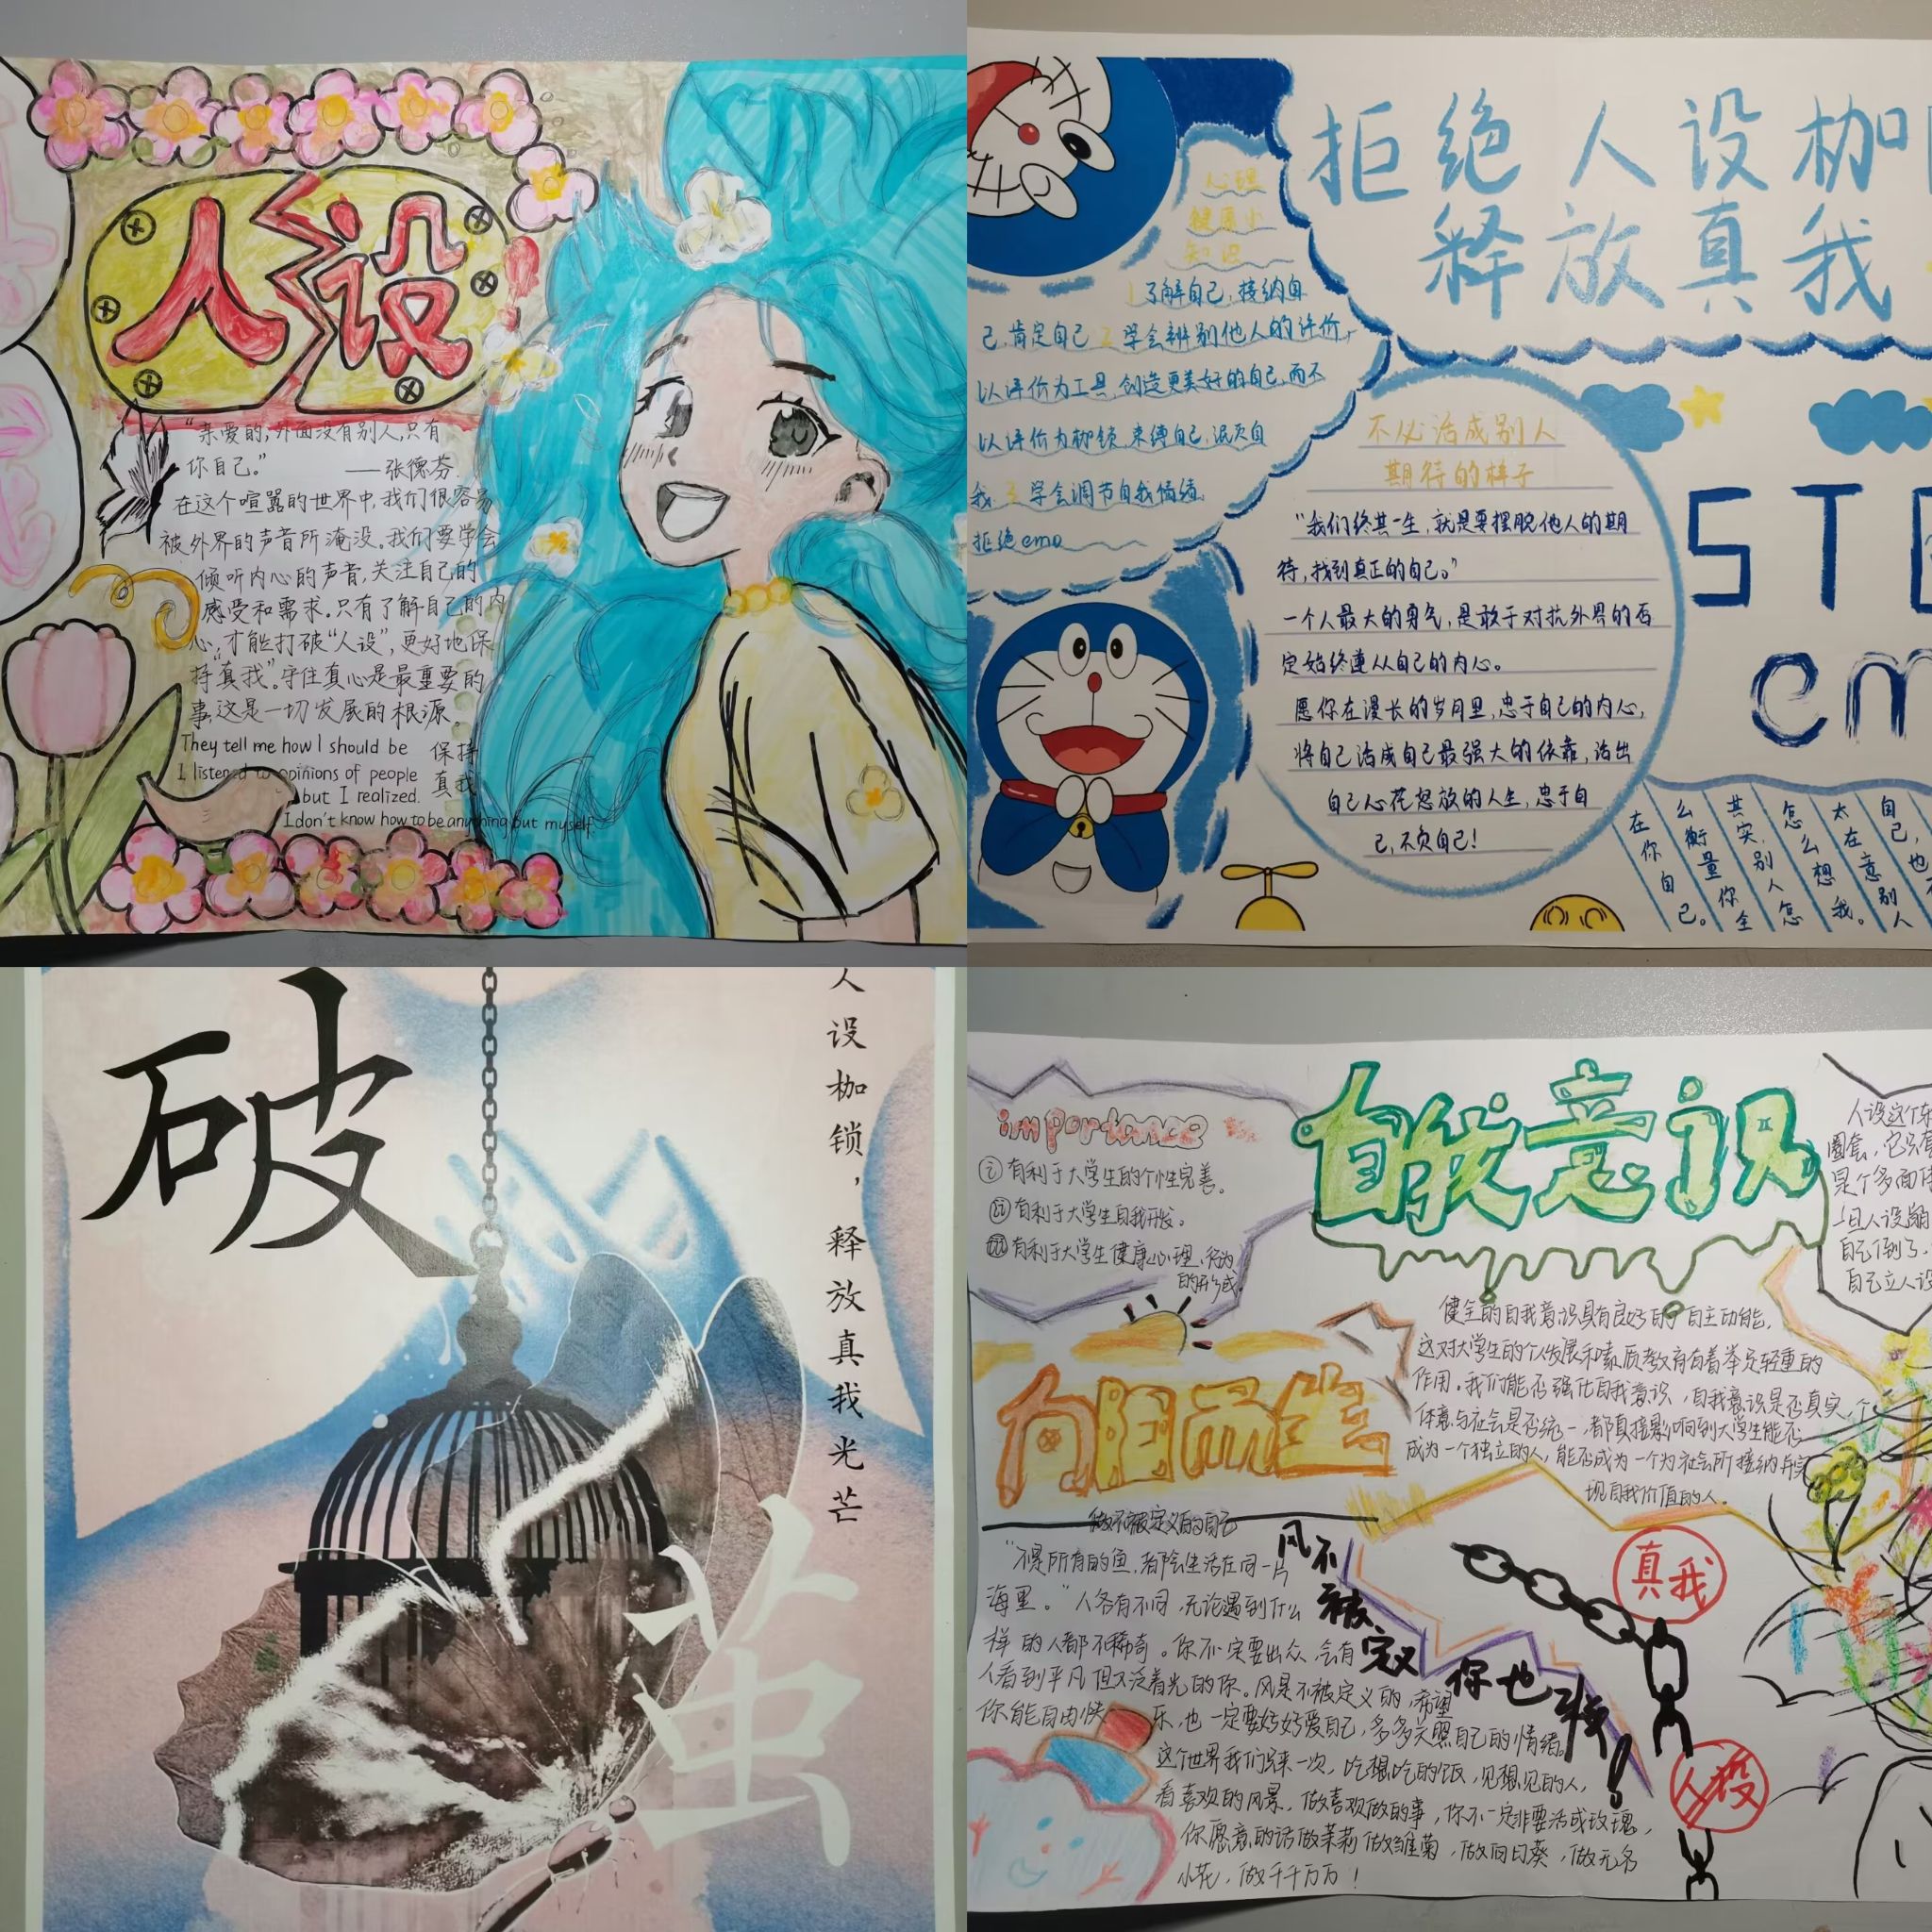 人设
“亲爱的,外面没有别人,只有
你自己。”
——张德芬.
在这个喧嚣的世界中,我们很容易
被外界的声音所淹没。我们要学会
倾听内心的声音,关注自己的
感受和需求。只有了解自己的内
心,才能打破“人设”,更好地保
持“真我”。守住真心是最重要的
事,这是一切发展的根源。
They tell me how I should be
I listened to opinions of people
but I realized.
I don't know how to be anything but myself.
保持
真我
拒绝人设枷
释放真我
心理
健康小
知识
1 了解自己,接纳自
己,肯定自己 2 学会辨别他人的评价,
以评价为工具,创造更美好的自己,而不
以评价为枷锁,束缚自己,泯灭自
我. 3 学会调节自我情绪.
拒绝emo
不必活成别人
期待的样子
“我们终其一生,就是要摆脱他人的期
待,找到真正的自己。”
一个人最大的勇气,是敢于对抗外界的否
定始终遵从自己的内心。
愿你在漫长的岁月里,忠于自己的内心,
将自己活成自己最强大的依靠,活出
自己心花怒放的人生,忠于自
己,不负自己!
ST
em
自己,也
太在意别人
怎么想我。
共实,别人怎
么衡量你全
在你自己。
破
茧
人设枷锁,释放真我光芒
importance
ⅰ 有利于大学生的个性完善。
ⅱ 有利于大学生自我开发。
ⅲ 有利于大学生健康心理,行为
的形成.
自我意识
人设这个东
圈套,它只有
是个多面体
一旦人设崩
自己倒了,
自己立人设
健全的自我意识具有良好的自主功能,
这对大学生的个人发展和素质教育有着举足轻重的
作用。我们能否强化自我意识,自我意识是否真实,个
体意与社会是否统一,都直接影响到大学生能否
成为一个独立的人,能否成为一个为社会所接纳并实
现自我价值的人。
向阳而生
做不被定义的自己
“不是所有的鱼,都会生活在同一片
海里。”人各有不同,无论遇到什么
样的人都不稀奇。你不一定要出众,会有
人看到平凡但又泛着光的你。风是不被定义的,希望
你能自由快乐,也一定要好好爱自己,多多关照自己的情绪。
这个世界我们只来一次,吃想吃的饭,见想见的人,
看喜欢的风景,做喜欢做的事,你不一定非要活成玫瑰,
你愿意的话做茉莉做雏菊,做向日葵,做无名
小花,做千千万万!
风不被定义你也是!
真我
人设